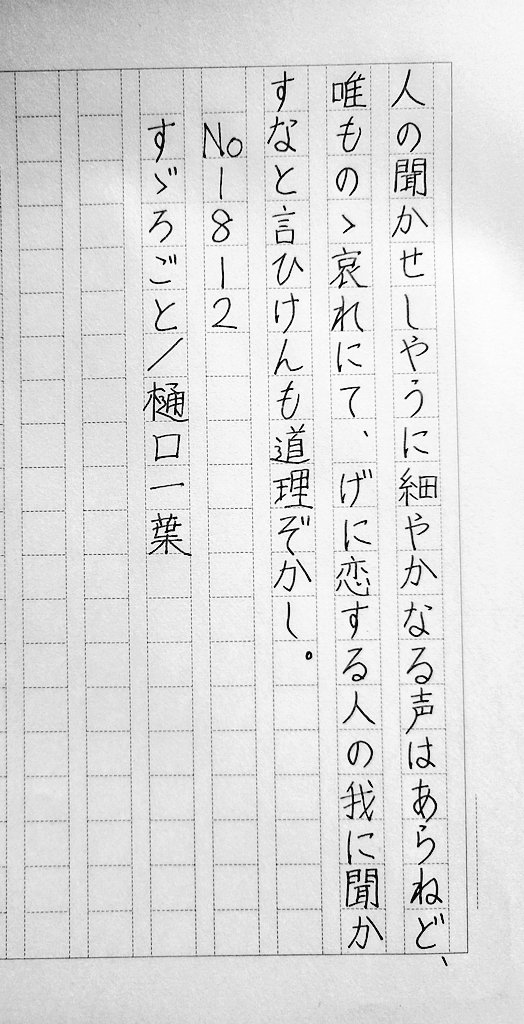 人の聞かせしやうに細やかなる声はあらねど、
唯ものゝ哀れにて、げに恋する人の我に聞か
すなと言ひけんも道理ぞかし。
No1812
すゞろごと/樋口一葉